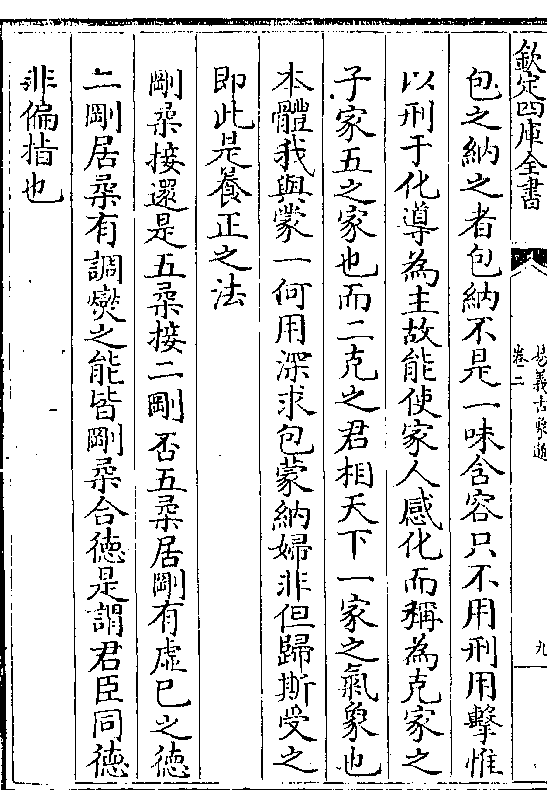 欽定四庫全書
易義古象通
卷二
九
包之納之者包納不是一味含容只不用刑用擊惟
以刑于化導為主故能使家人感化而稱為克家之
子家五之家也而二克之君相天下一家之氣象也
本體我與蒙一何用深求包蒙納婦非但歸斯受之
即此是養正之法
剛柔接還是五柔接二剛否五柔居剛有虛已之德
二剛居柔有調爕之能皆剛柔合德是謂君臣同德
非偏指也